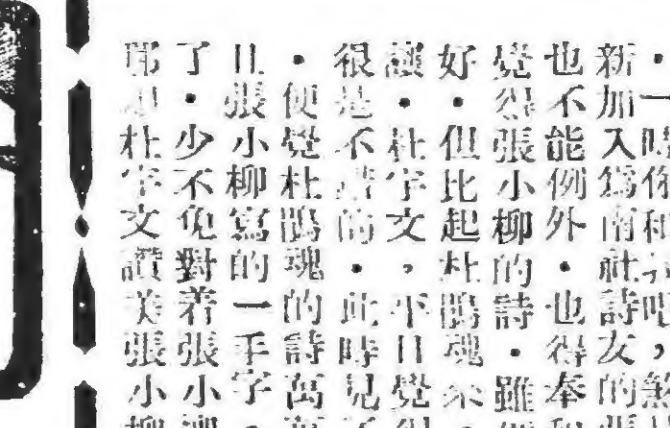 ・一時
新加入爲南社詩友的張
也不能例外・也得奉和
覺得張小柳的詩・雖
好・但比起杜鵑魂來・
・杜宇文，平日覺得
很是不錯的・此時見
・便覺杜鵑魂的詩萬
且張小柳寫的一手字・
了・少不免對着張小
那是杜宇文讚美張小柳